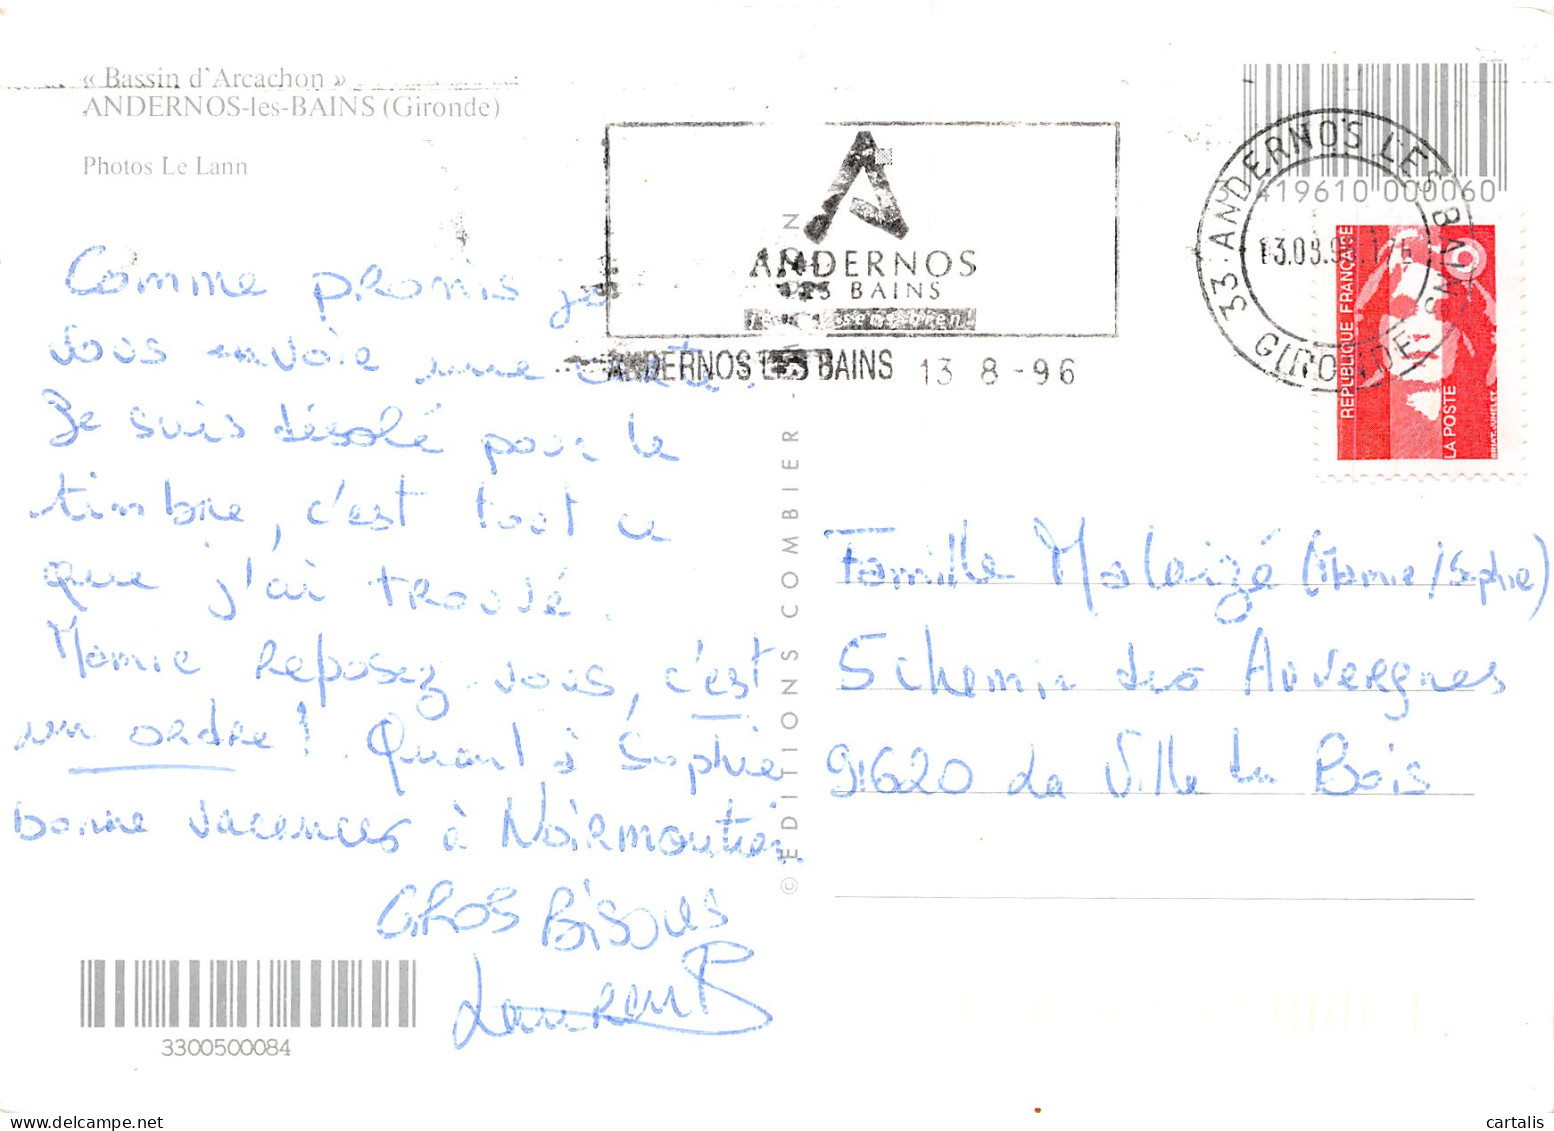 « Bassin d'Arcachon »
ANDERNOS-les-BAINS (Gironde)
Photos Le Lann
Comme promis je
vous envoie une carte.
Je suis désolé pour le
timbre, c'est tout ce
que j'ai trouvé.
Mamie reposez-vous, c'est
un ordre! Quant à Sophie
bonne vacances à Noirmoutier.
GROS Bisous
Laurent B
3300500084
© EDITIONS COMBIER -
ANDERNOS
LES BAINS
ANDERNOS LES BAINS 13 8 - 96
3 419610 000060
33 ANDERNOS LES BAINS
GIRONDE
REPUBLIQUE FRANÇAISE
LA POSTE
BRIAT. JUMELET
Famille Maleizé (Mamie/Sophie)
5 chemin des Auvergnes
91620 La Ville du Bois
cartalis